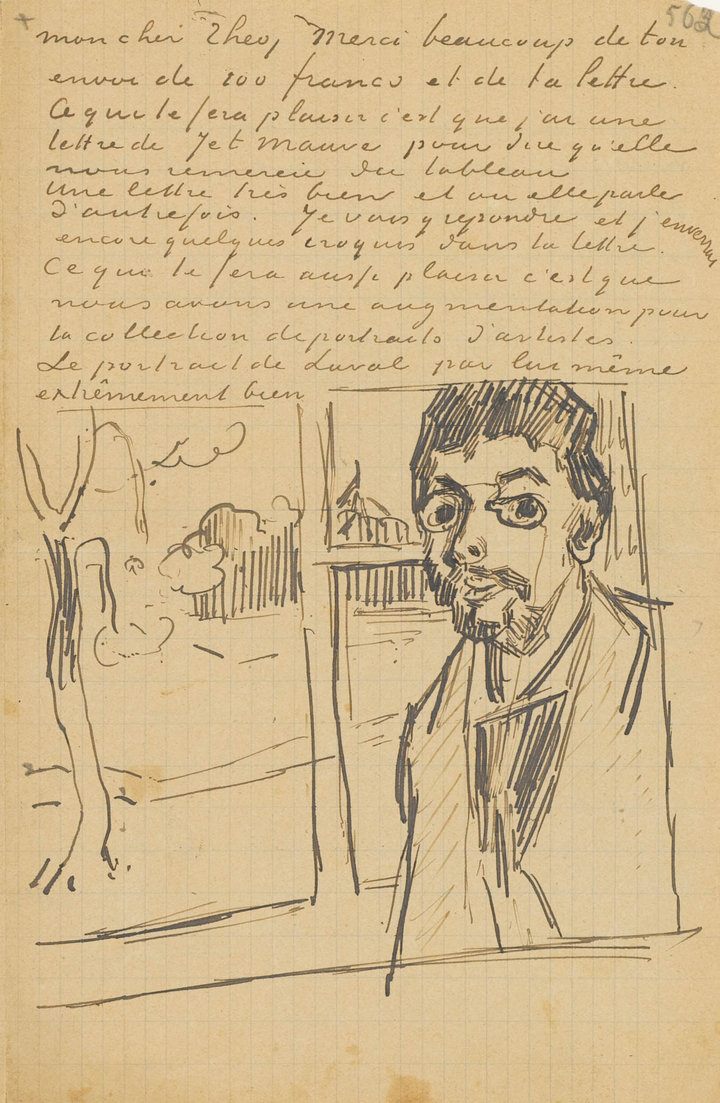 562
mon cher Theo, Merci beaucoup de ton
envoi de 100 francs et de ta lettre.
Ce qui te fera plaisir c'est que j'ai une
lettre de Jet Mauve pour dire qu'elle
nous remercie du tableau
Une lettre très bien et ou elle parle
d'autrefois. Je vais y repondre et j'enverrai
encore quelques croquis dans la lettre.
Ce qui te fera aussi plaisir c'est que
nous avons une augmentation pour
la collection de portraits d'artistes.
Le portrait de Laval par lui même
extrêmement bien